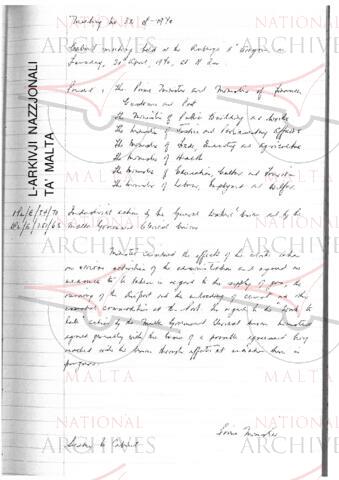 Meeting No 32 of 1970
Cabinet meeting held at the Auberge d'Aragon on
Thursday, 30 April, 1970, at 11 a.m.
Present : The Prime Minister and Minister of Finance,
Customs and Port
The Minister of Public Building and Works
The Minister of Justice and Parliamentary Affairs
The Minister of Trade, Industry and Agriculture
The Minister of Health
The Minister of Education, Culture and Tourism
The Minister of Labour, Employment and Welfare
Industrial action by the General Workers' Union and by the
Malta Government Clerical Union
Ministers considered the effects of the
on various activities of the administration and agreed on
measures to be taken in regard to the supply of
running of the airport and the unloading of cement and other
essential commodities at the Port. As regards to the
taken by the Malta Government Clerical Union Ministers
agreed generally with the terms of a possible agreement being
reached with the Union through efforts at mediation then in
progress.
Secretary to Cabinet
Prime Minister
L-ARKIVJI NAZZJONALI
TA' MALTA
NATIONAL
ARCHIVES
MALTA